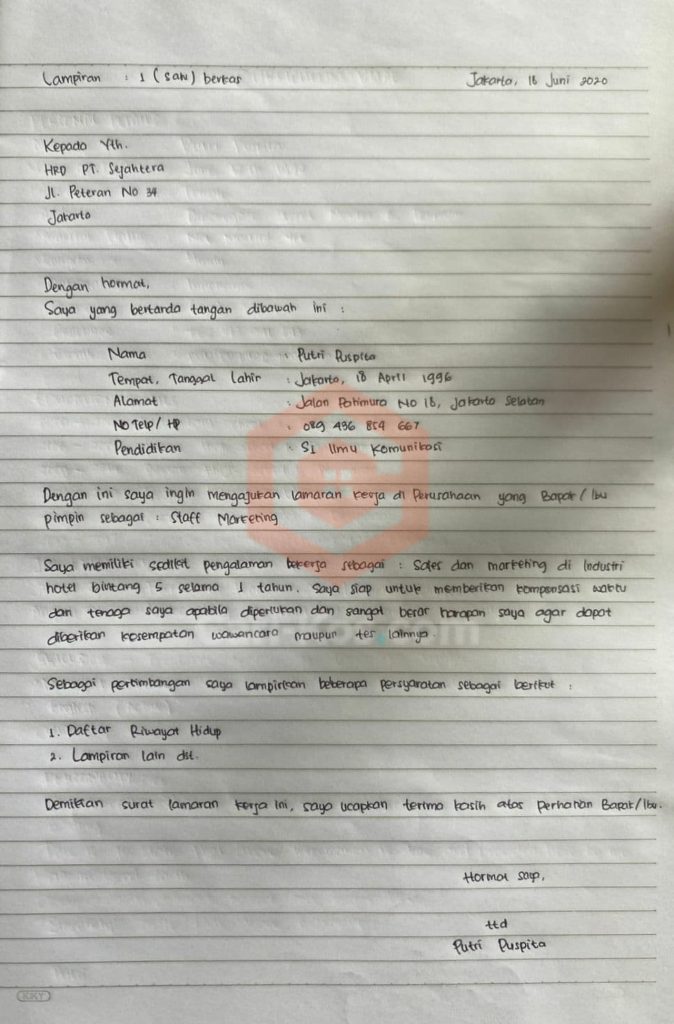 Lampiran : 1 (satu) berkas Jakarta, 18 Juni 2020
Kepada Yth.
HRD PT. Sejahtera
Jl. Peteran No 34
Jakarta
Dengan hormat,
Saya yang bertanda tangan dibawah ini :
Nama : Putri Puspita
Tempat, Tanggal Lahir : Jakarta, 18 April 1996
Alamat : Jalan Patimura No 18, Jakarta Selatan
No Telp/ HP : 089 436 854 667
Pendidikan : S1 Ilmu Komunikasi
Dengan ini saya ingin mengajukan lamaran kerja di Perusahaan yang Bapak/ Ibu
pimpin sebagai : Staff Marketing
Saya memiliki sedikit pengalaman bekerja sebagai : Sales dan marketing di Industri
hotel bintang 5 selama 1 tahun. Saya siap untuk memberikan kompensasi waktu
dan tenaga saya apabila diperlukan dan sangat besar harapan saya agar dapat
diberikan kesempatan wawancara maupun tes lainnya.
Sebagai pertimbangan saya lampirkan beberapa persyaratan sebagai berikut :
1. Daftar Riwayat Hidup
2. Lampiran lain dll.
Demikian surat lamaran kerja ini, saya ucapkan terima kasih atas perhatian Bapak/Ibu.
Hormat saya,
ttd
Putri Puspita
KKY